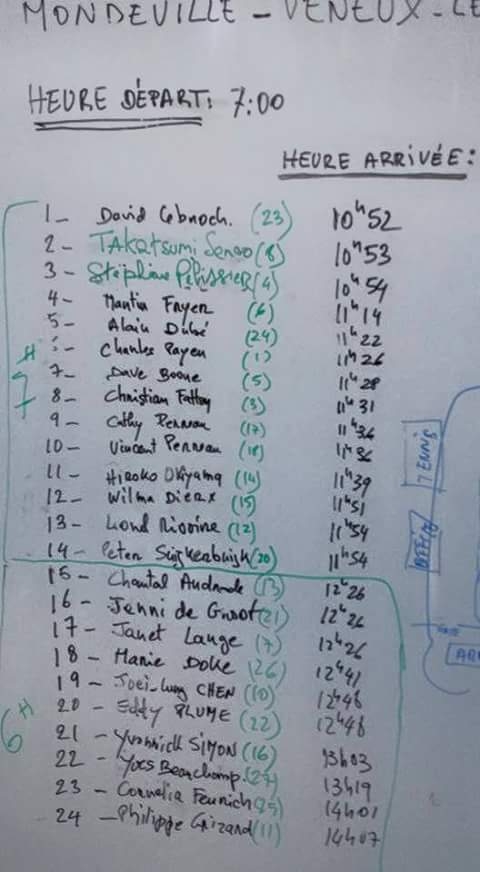 MONDEVILLE - VENEUX-LE
HEURE DÉPART: 7:00
HEURE ARRIVÉE:
1- David (23) 10h52
2- TAKATSUMI (8) 10h53
3- Stéphane PéLISSIER (4) 10h54
4- Martin Fryer (6) 11h14
5- Alain Dubé (24) 11h22
Charles Payen (1) 11h26
7- Dave Boone (5) 11h28
8- Christian Fatton (3) 11h31
9- Cathy Perneau (17) 11h36
10- Vincent Perneau (18) 11h36
11- Hiroko Okiyama (14) 11h39
12- Wilma Dierx (15) 11h51
13- (12) 11h54
14- Peter (20) 11h54
15- Chantal Andrade (13) 12h26
16- Jenni de Groot (21) 12h26
17- Janet Lange (7) 12h26
18- Marie Doke (26) 12h41
19- CHEN (10) 12h48
20- Eddy PLUME (22) 12h48
21- Yvonnick SIMON (16) 13h03
22- Yves Beauchamp 13h19
23- Cornelia 14h01
24- Philippe Grizard (11) 14h07
7H
6H
TENNIS
OFFICE